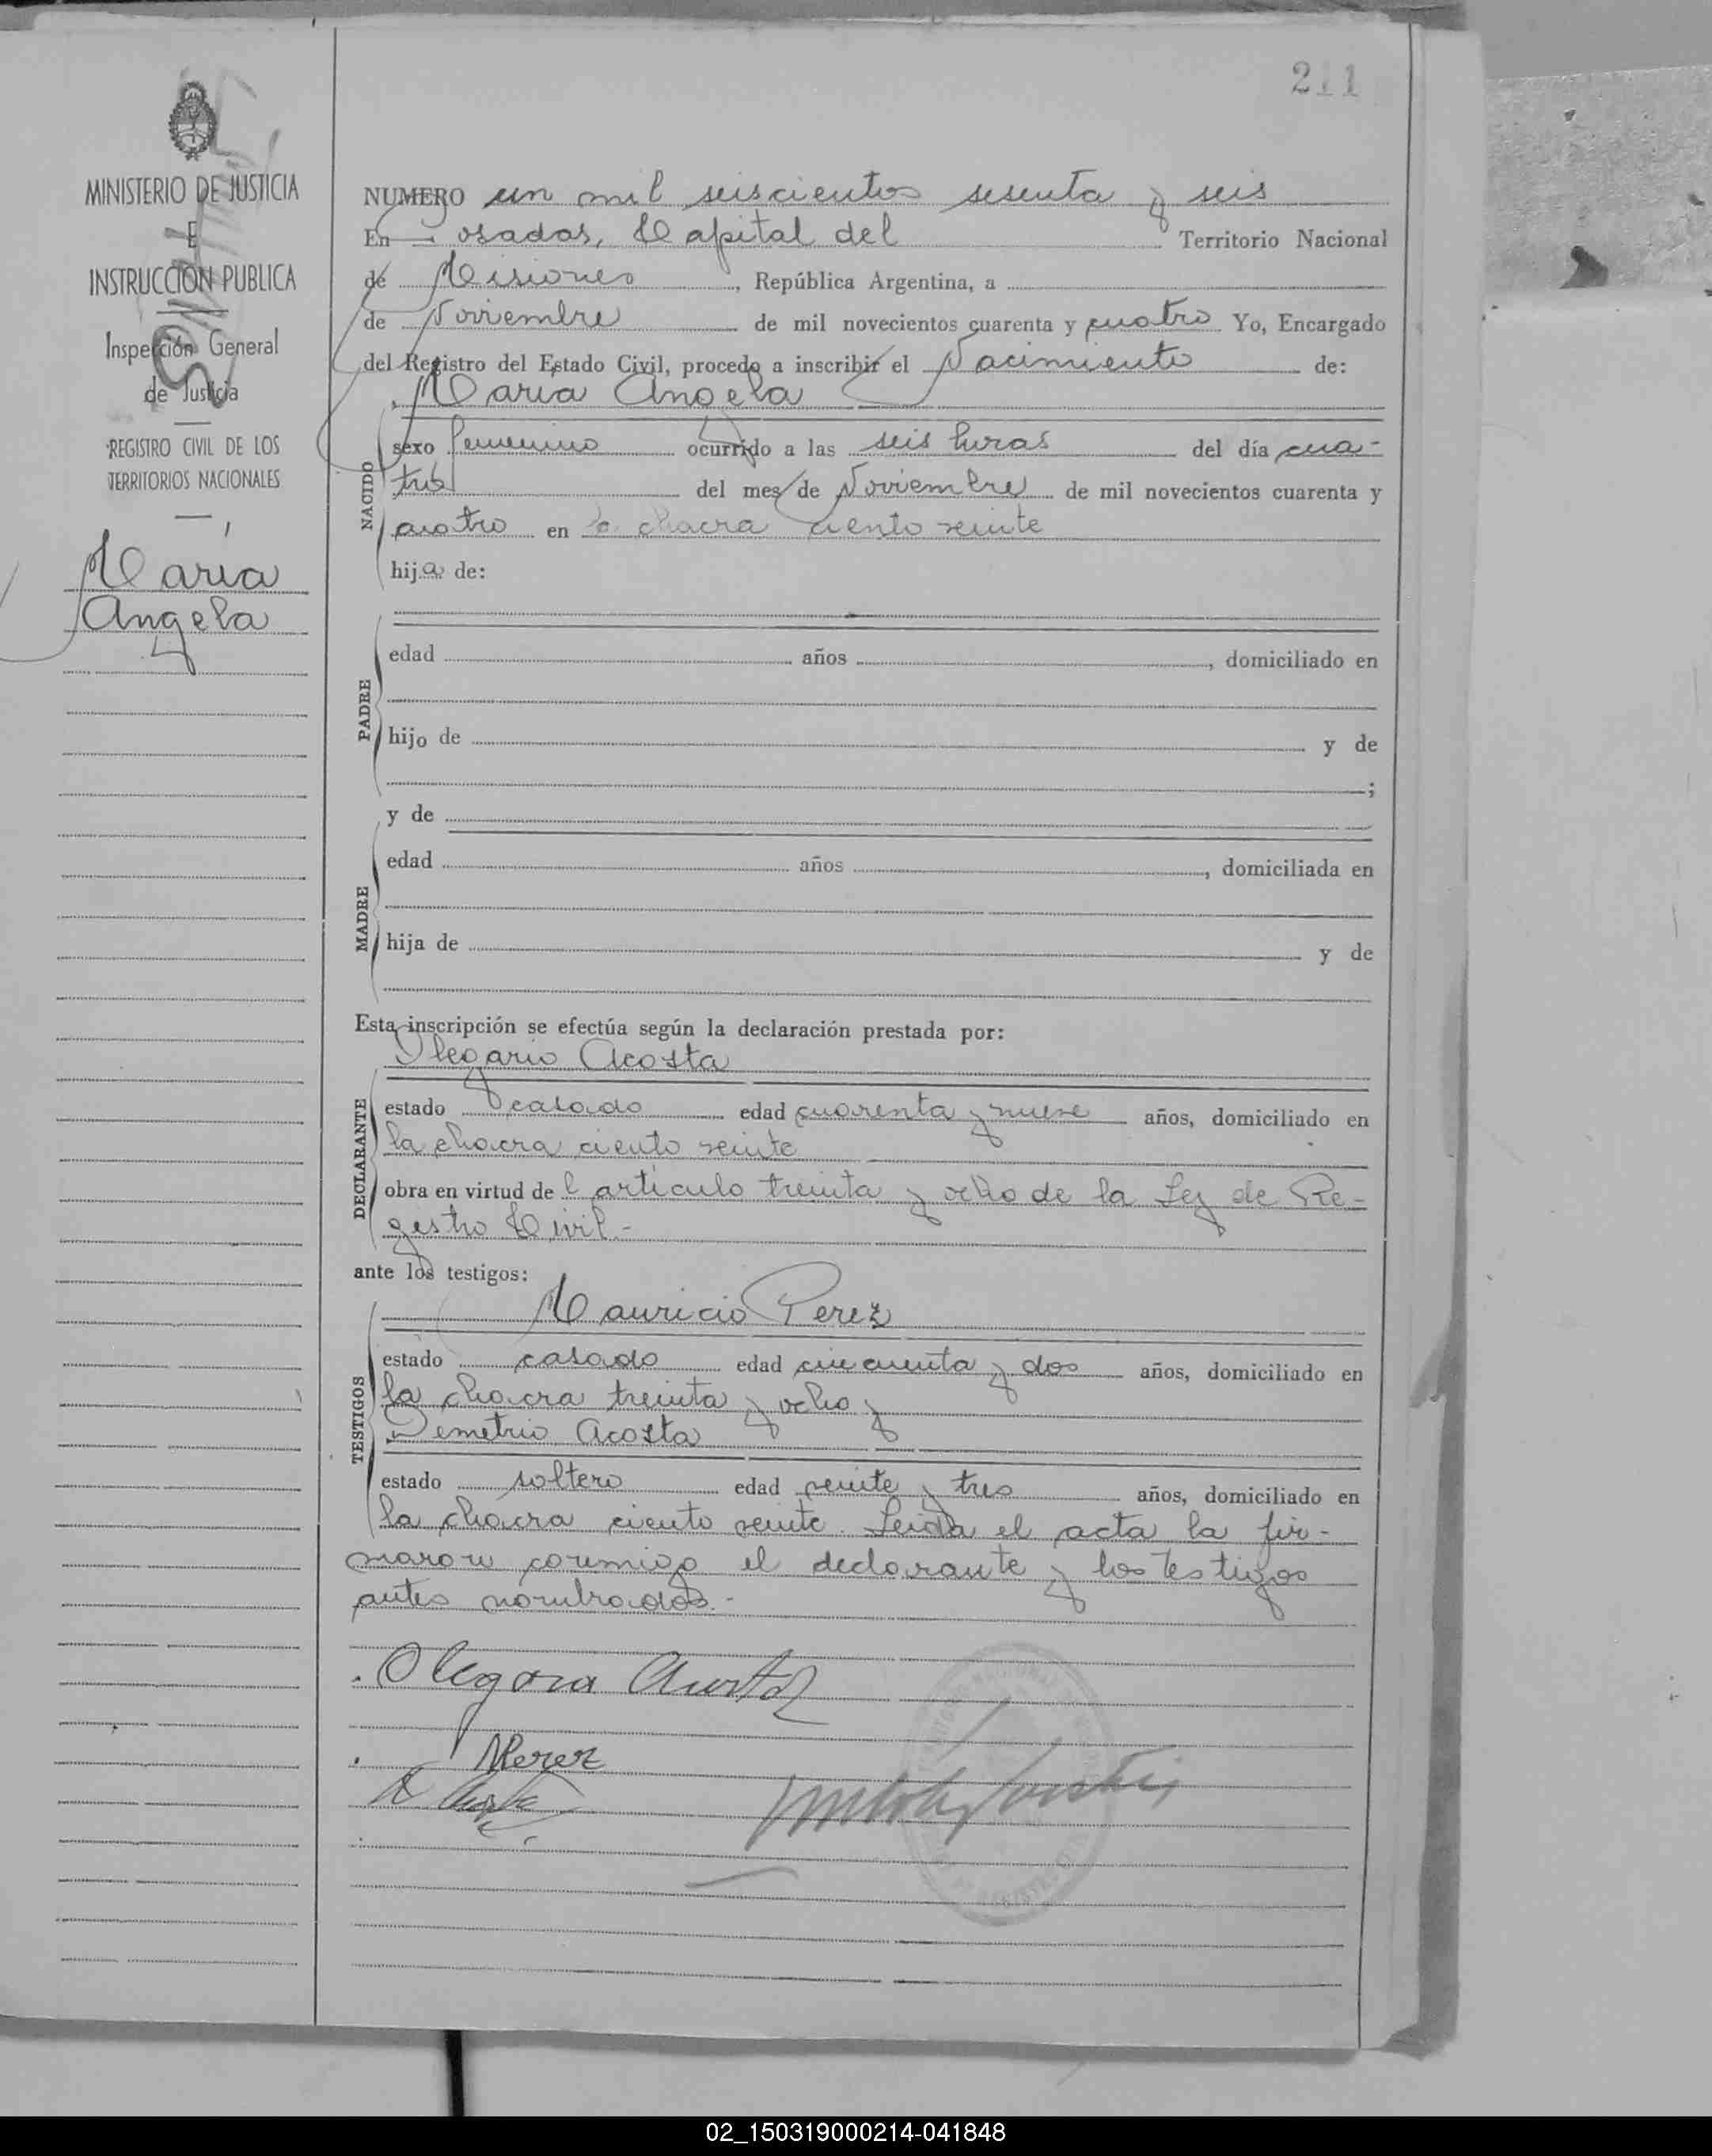 211
MINISTERIO DE JUSTICIA
E
INSTRUCCIÓN PUBLICA
Inspección General
de Justicia
REGISTRO CIVIL DE LOS
TERRITORIOS NACIONALES
María
Angela
NUMERO un mil seiscientos sesenta y seis
En Posadas, Capital del Territorio Nacional
de Misiones, República Argentina, a
de Noviembre de mil novecientos cuarenta y cuatro Yo, Encargado
del Registro del Estado Civil, procedo a inscribir el Nacimiento de:
María Angela
NACIDO
sexo femenino ocurrido a las seis horas del día cua-
tro del mes de Noviembre de mil novecientos cuarenta y
cuatro en la chacra ciento veinte
hija de:
PADRE
edad años, domiciliado en
hijo de y de
;
y de
MADRE
edad años, domiciliada en
hija de y de
Esta inscripción se efectúa según la declaración prestada por:
Olegario Acosta
DECLARANTE
estado casado edad cuarenta y nueve años, domiciliado en
la chacra ciento veinte
obra en virtud del artículo treinta y ocho de la Ley de Re-
gistro Civil.-
ante los testigos:
Mauricio Perez
TESTIGOS
estado casado edad cincuenta y dos años, domiciliado en
la chacra treinta y ocho y
Demetrio Acosta
estado soltero edad veinte y tres años, domiciliado en
la chacra ciento veinte. Leida el acta la fir-
maron conmigo el declarante y los testigos
antes nombrados.-
Olegario Acosta
MPerez
02_150319000214-041848